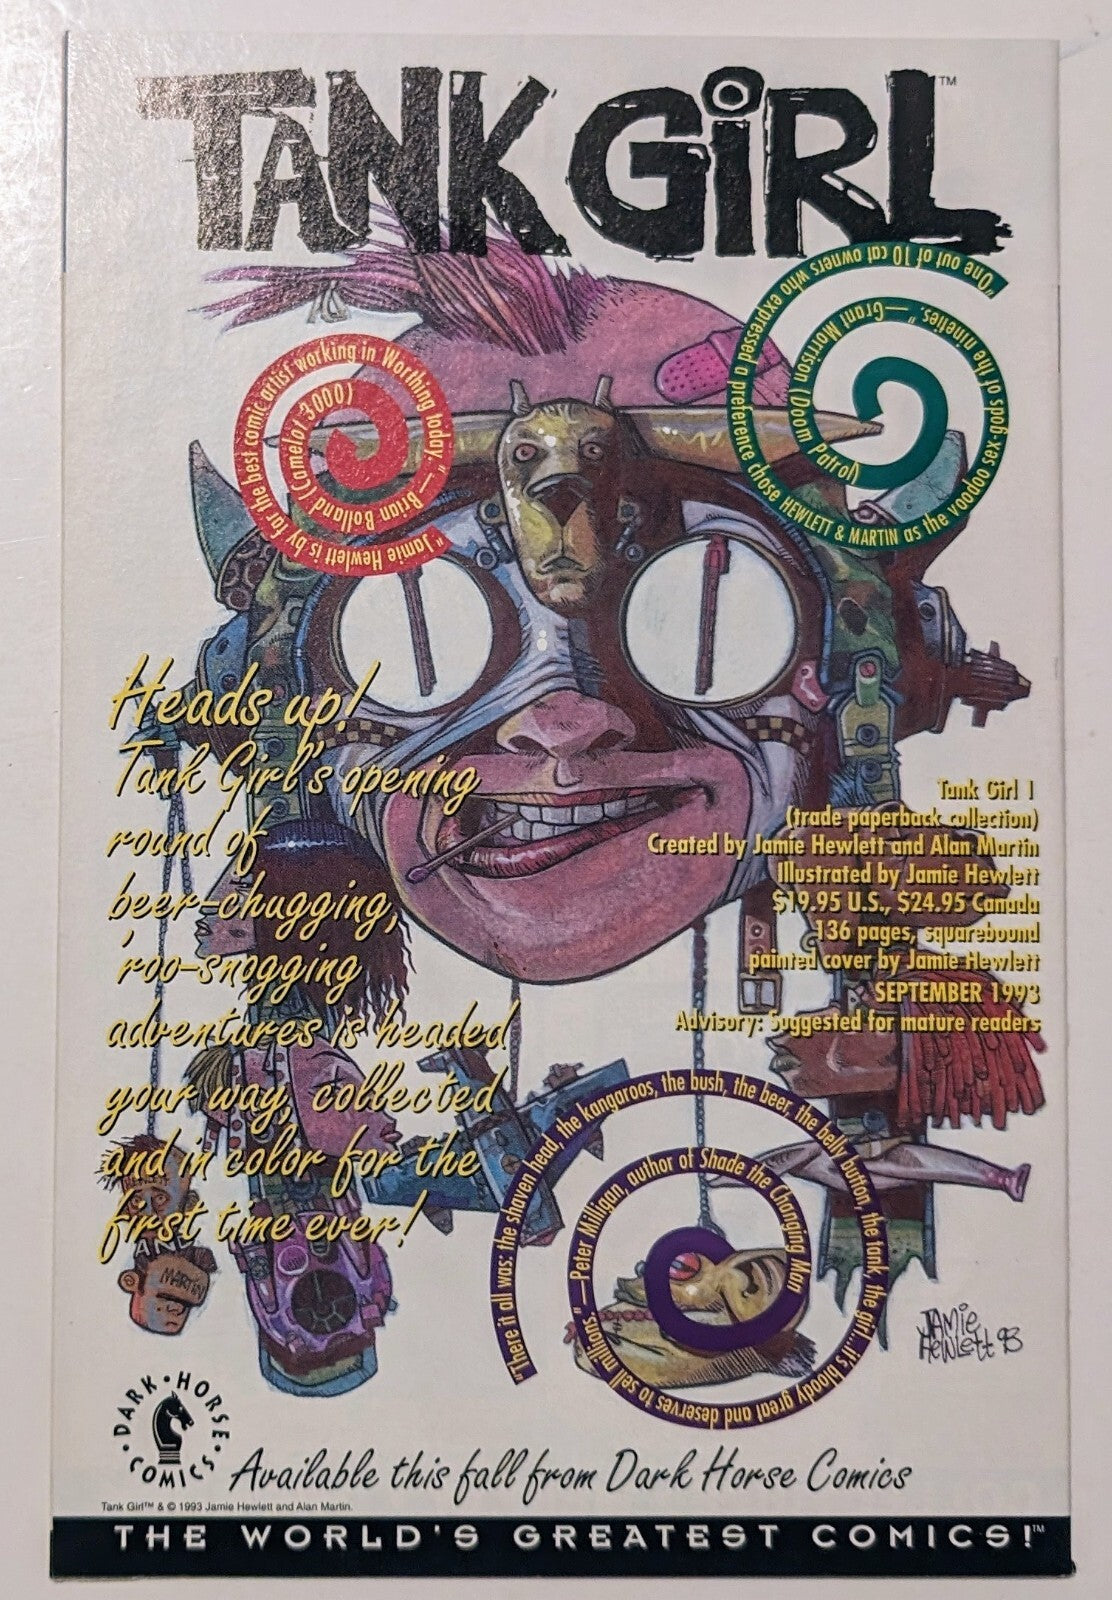 TANK GiRL™
"Jamie Hewlett is by far the best comic artist working in Worthing today." — Brian Bolland (Camelot 3,000)
"One out of 10 cat owners who expressed a preference chose HEWLETT & MARTIN as the voodoo sex-gods of the nineties." —Grant Morrison (Doom Patrol)
Heads up!
Tank Girl's opening
round of
beer-chugging,
'roo-snogging
adventures is headed
your way, collected
and in color for the
first time ever!
Tank Girl 1
(trade paperback collection)
Created by Jamie Hewlett and Alan Martin
Illustrated by Jamie Hewlett
$19.95 U.S., $24.95 Canada
136 pages, squarebound
painted cover by Jamie Hewlett
SEPTEMBER 1993
Advisory: Suggested for mature readers
"There it all was: the shaven head, the kangaroos, the bush, the beer, the belly button, the tank, the girl...it's bloody great and deserves to sell millions." —Peter Milligan, author of Shade the Changing Man
HEWLETT
AND
MARTIN
JAMiE
HEWLETT 93
DARK • HORSE • COMICS •
Available this fall from Dark Horse Comics
Tank Girl™ & © 1993 Jamie Hewlett and Alan Martin.
THE WORLD'S GREATEST COMICS!™